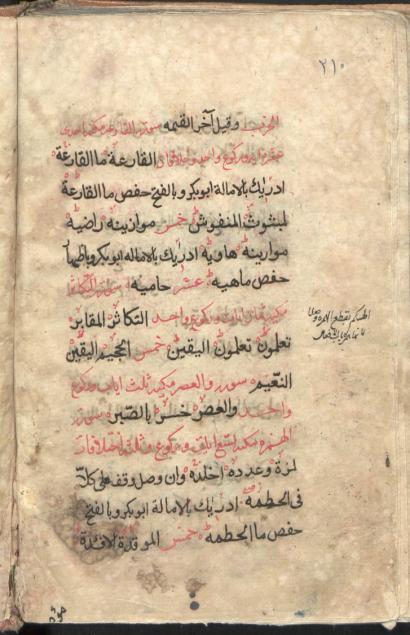 ٢١٠
الحزب وقيل آخر القيمه سورة القارعة مكية احدى
عشرة اية وركوع واحد وخلافها القارعة ما القارعة
ادريك بالامالة ابوبكر وبالفتح حفص ما القارعة
لمبثوث المنفوش خمس موازينه راضية
موازينه هاوية ادريك بالاماله ابوبكر
حفص ماهيه عشر حاميه سورة التكاثر
مكية ثمان ايات وركوع واحد التكاثر المقابر
تعلمون تعلمون اليقين خمس الجحيم اليقين
النعيم سورة والعصر مكية ثلث ايات وركوع
واحد والعصر خسر بالصبر سورة
الهمزة مكية تسع ايات وركوع وثلث اختلافات
لمزة وعدده اخلده وان وصل وقف على كلا
فى الحطمه ادريك بالامالة ابوبكر وبالفتح
حفص ما الحطمه خمس الموقدة الافئدة